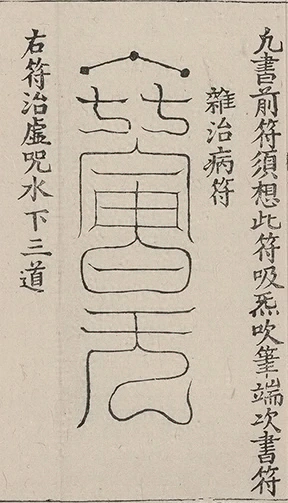 凡書前符須想此符吸炁吹筆端次書符
雜治病符
右符治虛咒水下三道